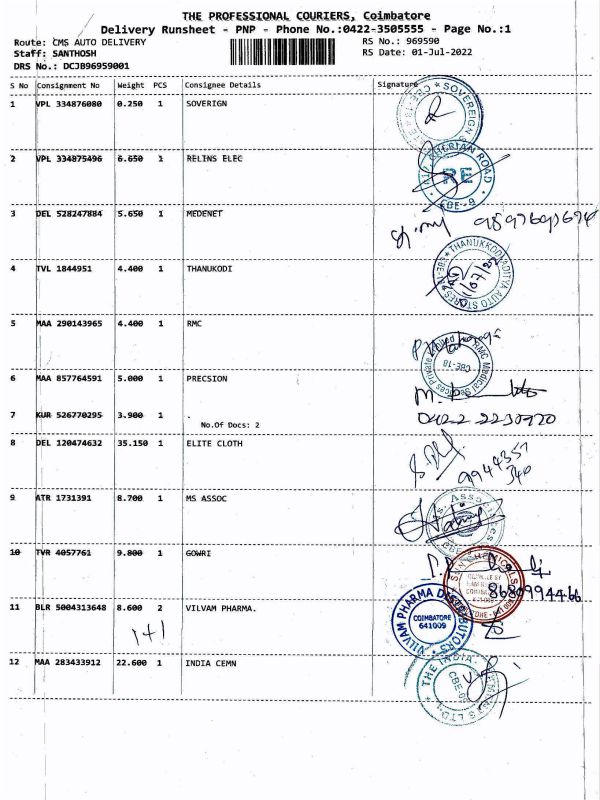 THE PROFESSIONAL COURIERS, Coimbatore
Delivery Runsheet - PNP - Phone No.:0422-3505555 - Page No.:1
Route: CMS AUTO DELIVERY
RS No.: 969590
Staff: SANTHOSH
RS Date: 01-Jul-2022
DRS No.: DCJB96959001
S No Consignment No Weight PCS Consignee Details Signature
1 VPL 334876080 0.250 1 SOVERIGN
2 VPL 334875496 6.650 1 RELINS ELEC
CHERIAN ROAD
RE
CBE-9
3 DEL 528247884 5.650 1 MEDENET
4 TVL 1844951 4.400 1 THANUKODI
5 MAA 290143965 4.400 1 RMC
CBE-18
6 MAA 857764591 5.000 1 PRECSION
7 KUR 526770295 3.900 1 .
0422 2230770
No.Of Docs: 2
8 DEL 120474632 35.150 1 ELITE CLOTH
9944357
340
9 ATR 1731391 8.700 1 MS ASSOC
10 TVR 4057761 9.800 1 GOWRI
8680994466
11 BLR 5004313648 8.600 2 VILVAM PHARMA.
VILVAM PHARMA DISTRIBUTORS
COIMBATORE
641009
1+1
12 MAA 283433912 22.600 1 INDIA CEMN
THE INDIA